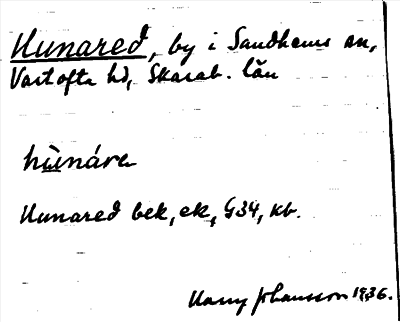 Hunared, by i Sandhems sn,
Vartofta hd, Skarab. län
hùnárə
Hunared bek, ek, G34, kb.
Harry Johansson 1936.